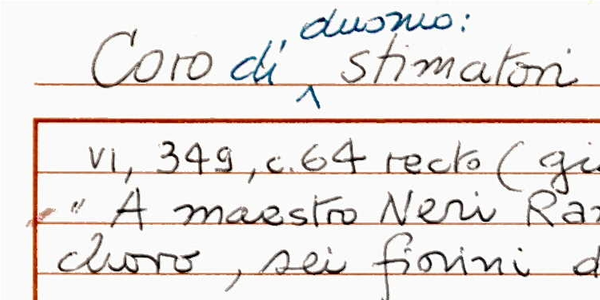 Coro di duomo: stimatori
VI, 349, c. 64 recto (gi
" A maestro Neri Ra
choro, sei fiorini d